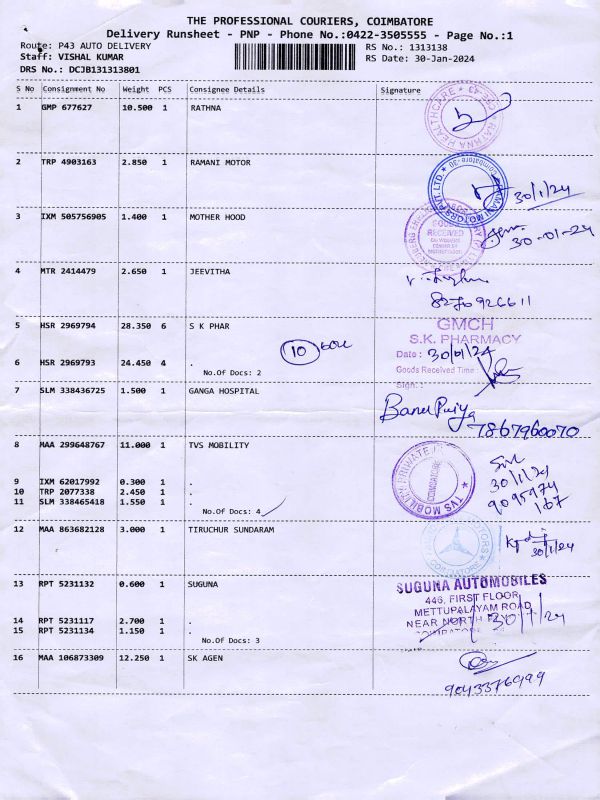 THE PROFESSIONAL COURIERS, COIMBATORE
Delivery Runsheet - PNP - Phone No.:0422-3505555 - Page No.:1
Route: P43 AUTO DELIVERY
RS No.: 1313138
Staff: VISHAL KUMAR
RS Date: 30-Jan-2024
DRS No.: DCJB131313801
S No Consignment No Weight PCS Consignee Details Signature
1 GMP 677627 10.500 1 RATHNA
2 TRP 4903163 2.850 1 RAMANI MOTOR
30/1/24
3 IXM 505756905 1.400 1 MOTHER HOOD
GOODS
RECEIVED
30-01-24
4 MTR 2414479 2.650 1 JEEVITHA
5 HSR 2969794 28.350 6 S K PHAR
GMCH
S.K. PHARMACY
10 box
Date : 30/01/24
6 HSR 2969793 24.450 4 .
No.Of Docs: 2
Goods Received Time
Sign. :
7 SLM 338436725 1.500 1 GANGA HOSPITAL
7867960070
8 MAA 299648767 11.000 1 TVS MOBILITY
TVS MOBILITY PRIVATE
COIMBATORE
30/1/24
9 IXM 62017992 0.300 1 .
10 TRP 2077338 2.450 1 .
11 SLM 338465418 1.550 1 .
No.Of Docs: 4
9095974
167
12 MAA 863682128 3.000 1 TIRUCHUR SUNDARAM
30/1/24
13 RPT 5231132 0.600 1 SUGUNA
SUGUNA AUTOMOBILES
446, FIRST FLOOR
METTUPALAYAM ROAD
14 RPT 5231117 2.700 1 .
NEAR NORTH
30/1/24
15 RPT 5231134 1.150 1 .
No.Of Docs: 3
16 MAA 106873309 12.250 1 SK AGEN
9043376999